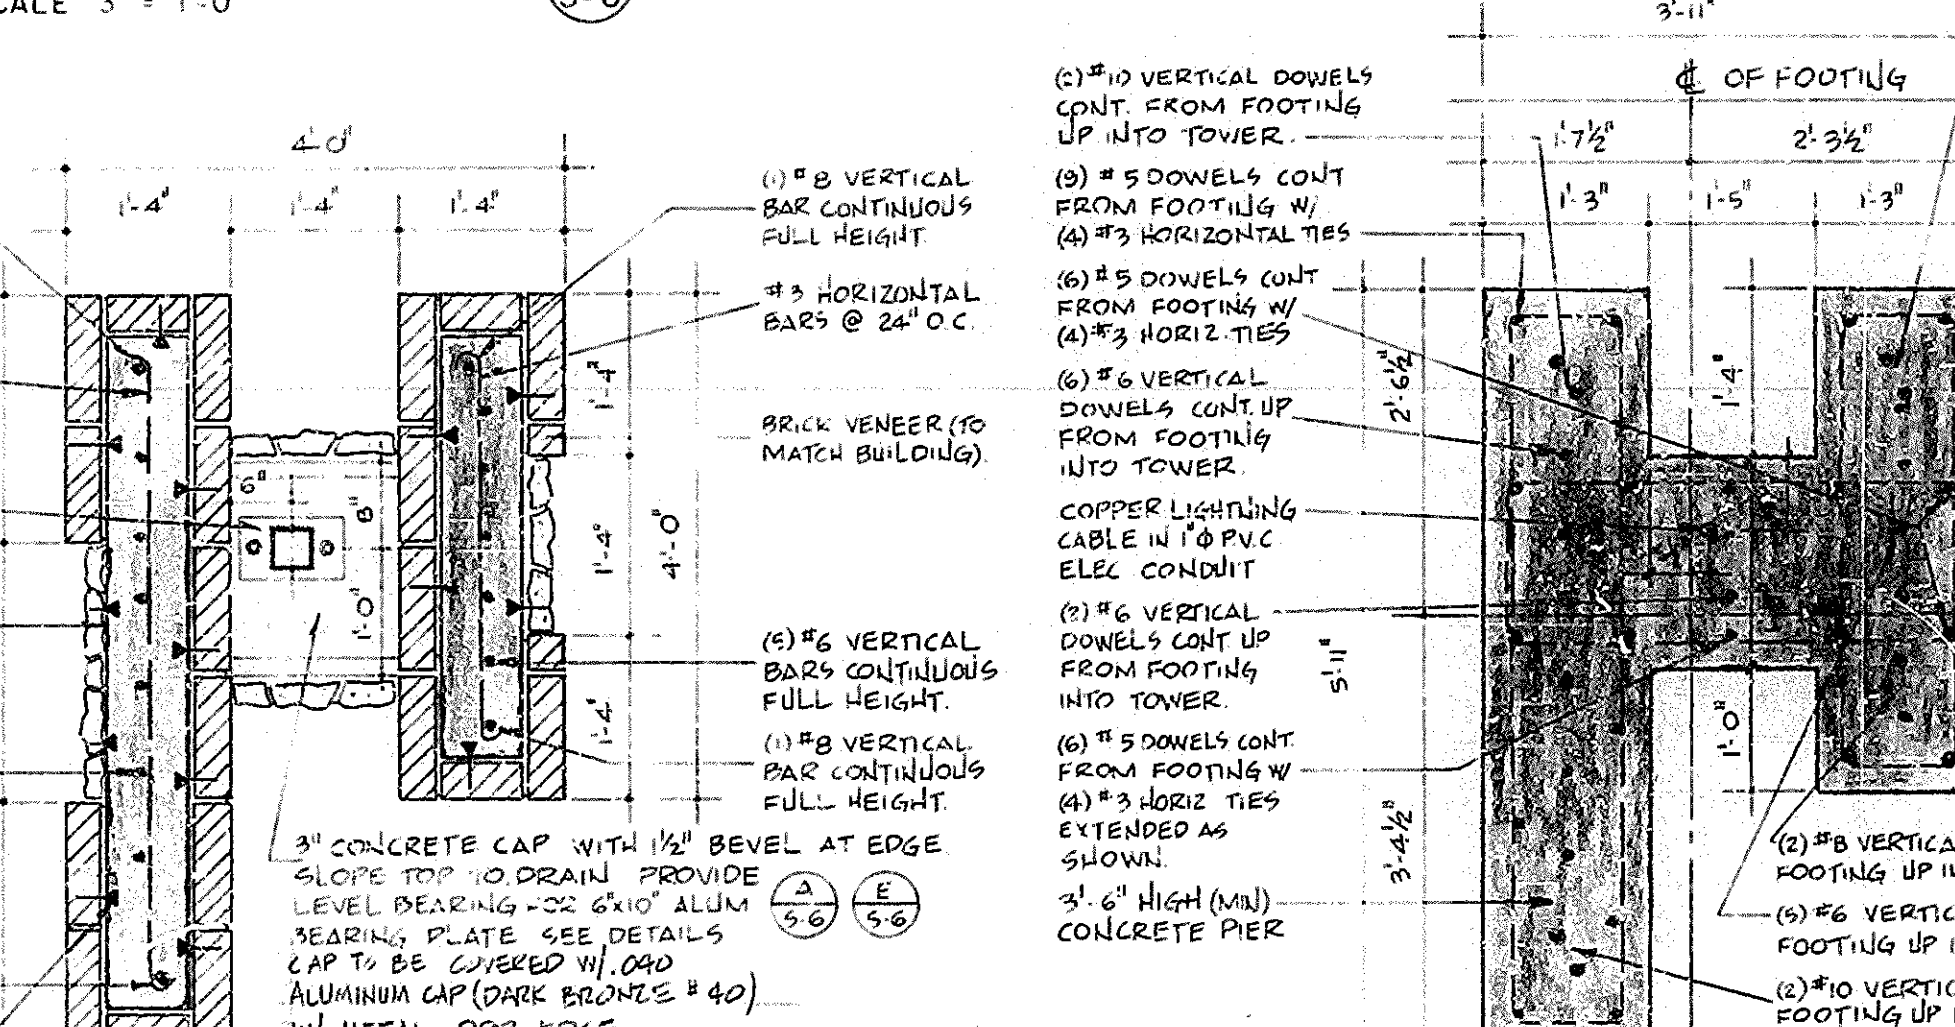 SCALE 3" = 1'-0"
S-6
4'-0"
1'-4"
1'-4"
1'-4"
(1) #8 VERTICAL
BAR CONTINUOUS
FULL HEIGHT
#3 HORIZONTAL
BARS @ 24" O.C.
BRICK VENEER (TO
MATCH BUILDING)
1'-4"
1'-4"
4'-0"
1'-4"
6"
8"
1'-0"
(5) #6 VERTICAL
BARS CONTINUOUS
FULL HEIGHT.
(1) #8 VERTICAL
BAR CONTINUOUS
FULL HEIGHT.
3" CONCRETE CAP WITH 1½" BEVEL AT EDGE
SLOPE TOP TO DRAIN PROVIDE
LEVEL BEARING FOR 6"x10" ALUM
BEARING PLATE SEE DETAILS
A
S-6
E
S-6
CAP TO BE COVERED W/.040
ALUMINUM CAP (DARK BRONZE #40)
EDGE
(2) #10 VERTICAL DOWELS
CONT. FROM FOOTING
UP INTO TOWER.
(9) #5 DOWELS CONT
FROM FOOTING W/
(4) #3 HORIZONTAL TIES
(6) #5 DOWELS CONT
FROM FOOTING W/
(4) #3 HORIZ. TIES
(6) #6 VERTICAL
DOWELS CONT. UP
FROM FOOTING
INTO TOWER.
COPPER LIGHTNING
CABLE IN 1"Φ P.V.C
ELEC CONDUIT
#6 VERTICAL
DOWELS CONT UP
FROM FOOTING
INTO TOWER.
(6) #5 DOWELS CONT.
FROM FOOTING W/
(4) #3 HORIZ TIES
EXTENDED AS
SHOWN.
3'-6" HIGH (MIN)
CONCRETE PIER
3'-11"
℄ OF FOOTING
1'-7½"
2'-3½"
1'-3"
1'-5"
1'-3"
2'-6½"
1'-4"
5'-11"
1'-0"
3'-4½"
(2) #8 VERTICA
FOOTING UP I
(5) #6 VERTIC
FOOTING UP I
(2) #10 VERTIC
FOOTING UP